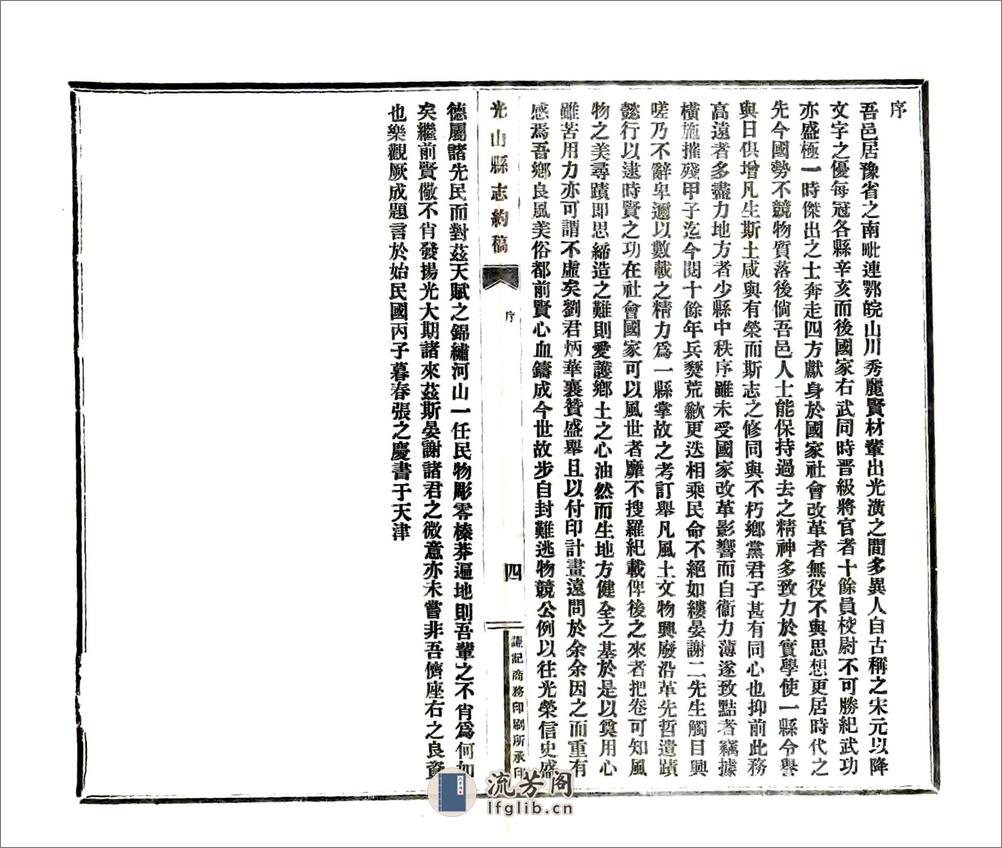 序
吾邑居豫省之南毗連鄂皖山川秀麗賢材輩出光潢之間多異人自古稱之宋元以降
文字之優每冠各縣辛亥而後國家右武同時晋級將官者十餘員校尉不可勝紀武功
亦盛極一時傑出之士奔走四方獻身於國家社會改革者無役不與思想更居時代之
先今國勢不競物質落後倘吾邑人士能保持過去之精神多致力於實學使一縣令譽
與日俱增凡生斯土咸與有榮而斯志之修同與不朽鄉黨君子甚有同心也抑前此務
高遠者多盡力地方者少縣中秩序雖未受國家改革影響而自衞力薄遂致黠者竊據
橫施摧殘甲子迄今閱十餘年兵燹荒歉更迭相乘民命不絕如縷晏謝二先生觸目興
嗟乃不辭卑邇以數載之精力爲一縣掌故之考訂舉凡風土文物興廢沿革先哲遺蹟
懿行以逮時賢之功在社會國家可以風世者靡不搜羅紀載俾後之來者把卷可知風
物之美尋蹟即思締造之難則愛護鄉土之心油然而生地方健全之基於是以奠用心
雖苦用力亦可謂不虛矣劉君炳華襄贊盛舉且以付印計畫遠問於余余因之而重有
感焉吾鄉良風美俗都前賢心血鑄成今世故步自封難逃物競公例以往光榮信史盛
光山縣志約稿
序
四
謙記商務印刷所承印
德屬諸先民而對茲天賦之錦繡河山一任民物彫零榛莽遍地則吾輩之不肖爲何如
矣繼前賢儆不肖發揚光大期諸來茲斯晏謝諸君之微意亦未嘗非吾儕座右之良資
也樂觀厥成題言於始民國丙子暮春張之慶書于天津
流芳阁
lfglib.cn